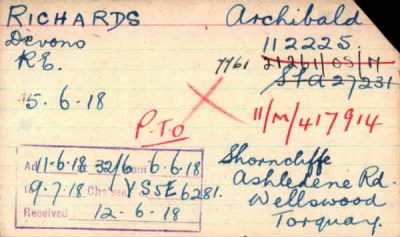 RICHARDS Archibald
Devons 112225.
R.E. 7761 21261/05/17
Sta 27231
15.6.18
P.T.O 11/M/417914
Ad 11-6-18 32/6 6-6-18 Shorncliffe
9.7.18 VS5E6281. Ashledene Rd.
Wellswood
Received 12-6-18 Torquay.